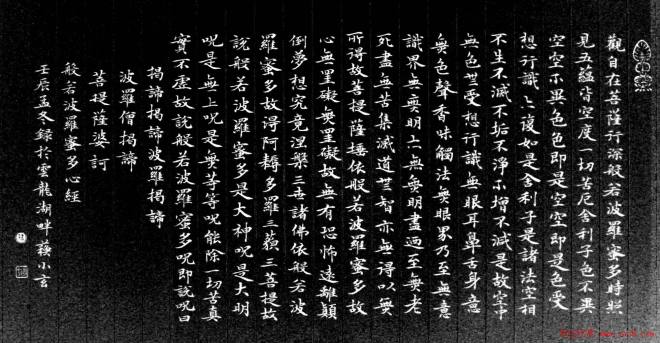 觀自在菩薩行深般若波羅蜜多時照
見五蘊皆空度一切苦厄舍利子色不異
空空不異色色即是空空即是色受
想行識亦復如是舍利子是諸法空相
不生不滅不垢不淨不增不減是故空中
無色無受想行識無眼耳鼻舌身意
無色聲香味觸法無眼界乃至無意
識界無無明亦無無明盡迺至無老
死盡無苦集滅道無智亦無得以無
所得故菩提薩埵依般若波羅蜜多故
心無罣礙無罣礙故無有恐怖遠離顛
倒夢想究竟涅槃三世諸佛依般若波
羅蜜多故得阿耨多羅三藐三菩提故
說般若波羅蜜多是大神呪是大明
呪是無上呪是無等等呪能除一切苦真
實不虛故說般若波羅蜜多呪即說呪曰
揭諦揭諦波羅揭諦
波羅僧揭諦
菩提薩婆訶
般若波羅蜜多心經
壬辰孟冬錄於雲龍湖畔小玄